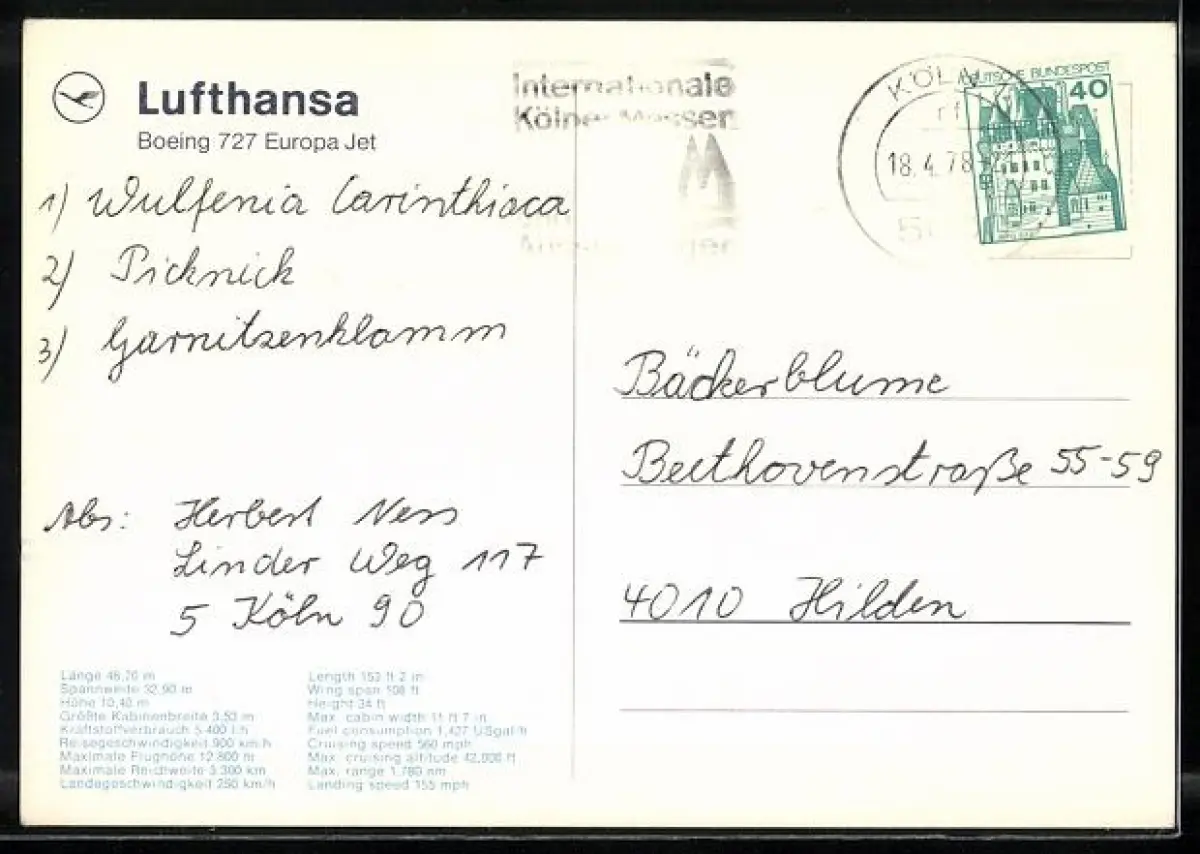 Lufthansa
Boeing 727 Europa Jet
Internationale
Kölner Messen
KÖLN
18.4.78
DEUTSCHE BUNDESPOST
40
1) Wulfenia Carinthiaca
2) Picknick
3) Garnitzenklamm
Bäckerblume
Beethovenstraße 55-59
4010 Hilden
Abs: Herbert Ness
Linder Weg 117
5 Köln 90
Länge 46,70 m
Spannweite 32,90 m
Höhe 10,40 m
Größte Kabinenbreite 3,53 m
Kraftstoffverbrauch 5 400 l/h
Reisegeschwindigkeit 900 km/h
Maximale Flughöhe 12.800 m
Maximale Reichweite 3.300 km
Landegeschwindigkeit 250 km/h
Length 153 ft 2 in
Wing span 108 ft
Height 34 ft
Max. cabin width 11 ft 7 in
Fuel consumption 1,427 USgal/h
Cruising speed 560 mph
Max. cruising altitude 42,000 ft
Max. range 1,780 nm
Landing speed 155 mph